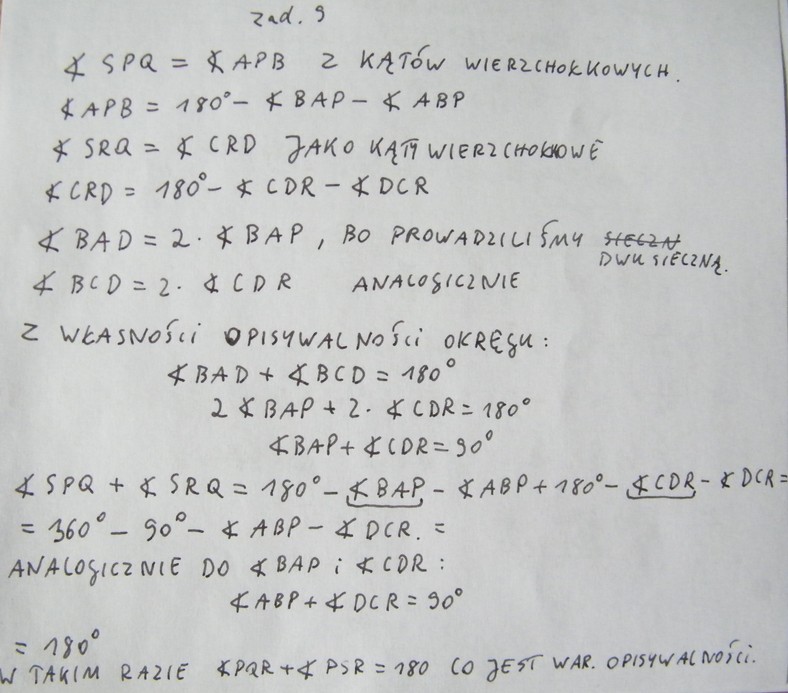 zad. 9
∢ SPQ = ∢ APB Z KĄTÓW WIERZCHOŁKOWYCH.
∢ APB = 180° - ∢ BAP - ∢ ABP
∢ SRQ = ∢ CRD JAKO KĄTY WIERZCHOŁKOWE
∢ CRD = 180° - ∢ CDR - ∢ DCR
∢ BAD = 2 · ∢ BAP, BO PROWADZILIŚMY SIECZN
DWUSIECZNĄ.
∢ BCD = 2 · ∢ CDR ANALOGICZNIE
Z WŁASNOŚCI OPISYWALNOŚCI OKRĘGU:
∢ BAD + ∢ BCD = 180°
2 ∢ BAP + 2 · ∢ CDR = 180°
∢ BAP + ∢ CDR = 90°
∢ SPQ + ∢ SRQ = 180° - ∢ BAP - ∢ ABP + 180° - ∢ CDR - ∢ DCR =
= 360° - 90° - ∢ ABP - ∢ DCR. =
ANALOGICZNIE DO ∢ BAP i ∢ CDR:
∢ ABP + ∢ DCR = 90°
= 180°
W TAKIM RAZIE ∢ PQR + ∢ PSR = 180 CO JEST WAR. OPISYWALNOŚCI.